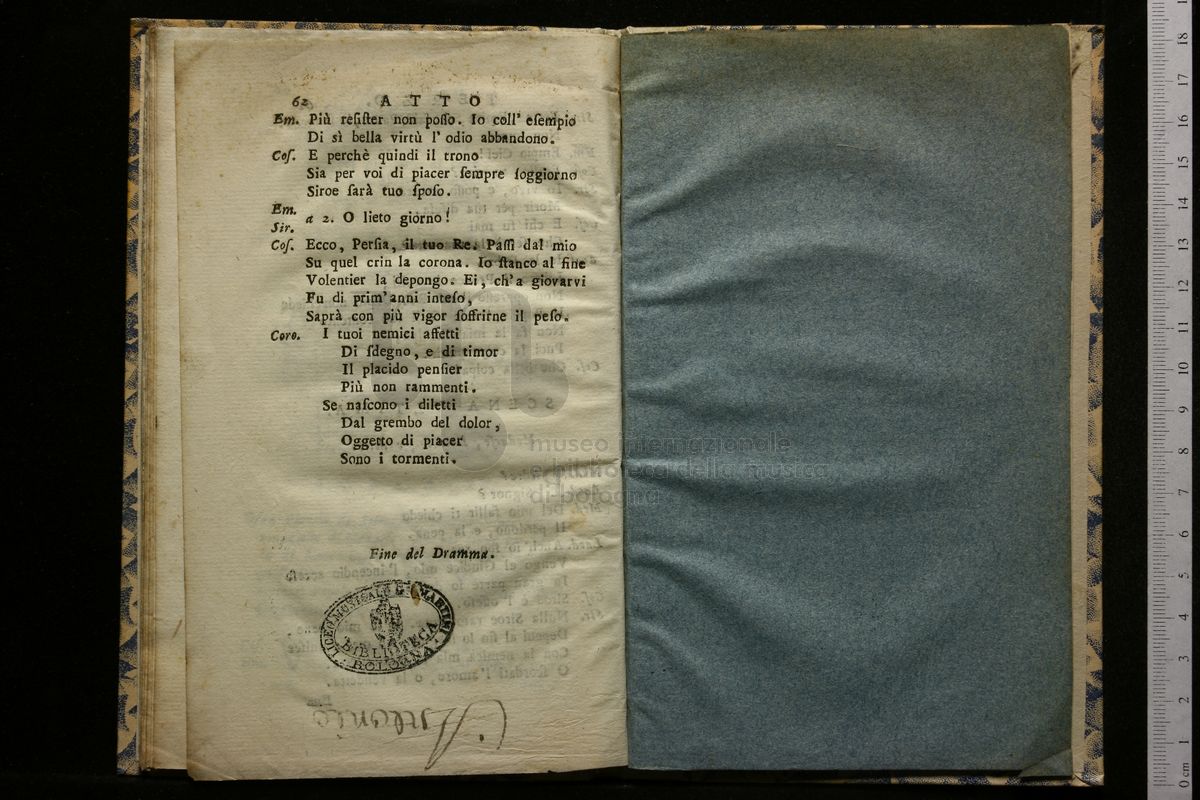 62 ATTO
Em. Più reſiſter non poſſo. Io coll' eſempio
Di sì bella virtù l' odio abbandono.
Coſ. E perchè quindi il trono
Sia per voi di piacer ſempre ſoggiorno
Siroe ſarà tuo ſpoſo.
Em.
Sir. a 2. O lieto giorno!
Coſ. Ecco, Perſia, il tuo Re. Paſſi dal mio
Su quel crin la corona. Io ſtanco al fine
Volentier la depongo. Ei, ch'a giovarvi
Fu di prim'anni inteſo,
Saprà con più vigor ſoffrirne il peſo.
Coro. I tuoi nemici affetti
Di ſdegno, e di timor
Il placido penſier
Più non rammenti.
Se naſcono i diletti
Dal grembo del dolor,
Oggetto di piacer
Sono i tormenti.
Fine del Dramma.
LICEO MUSICALE G.B. MARTINI
BIBLIOTECA
BOLOGNA
Antonio
museo internazionale
e biblioteca della musica
di bologna
0 cm 1 2 3 4 5 6 7 8 9 10 11 12 13 14 15 16 17 18